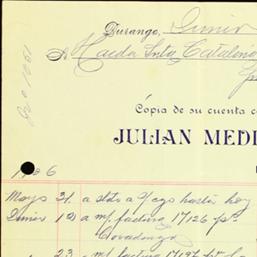 Durango, Junio
A Hacda Snta Catalena
Copia de su cuenta c
JULIAN MEDI
1906
Mayo 31 a sldo a/ cgo hasta hoy
Junio 19 a m/ factura 17126 pr
Covadonga
23 a m/ factura 17197 pr